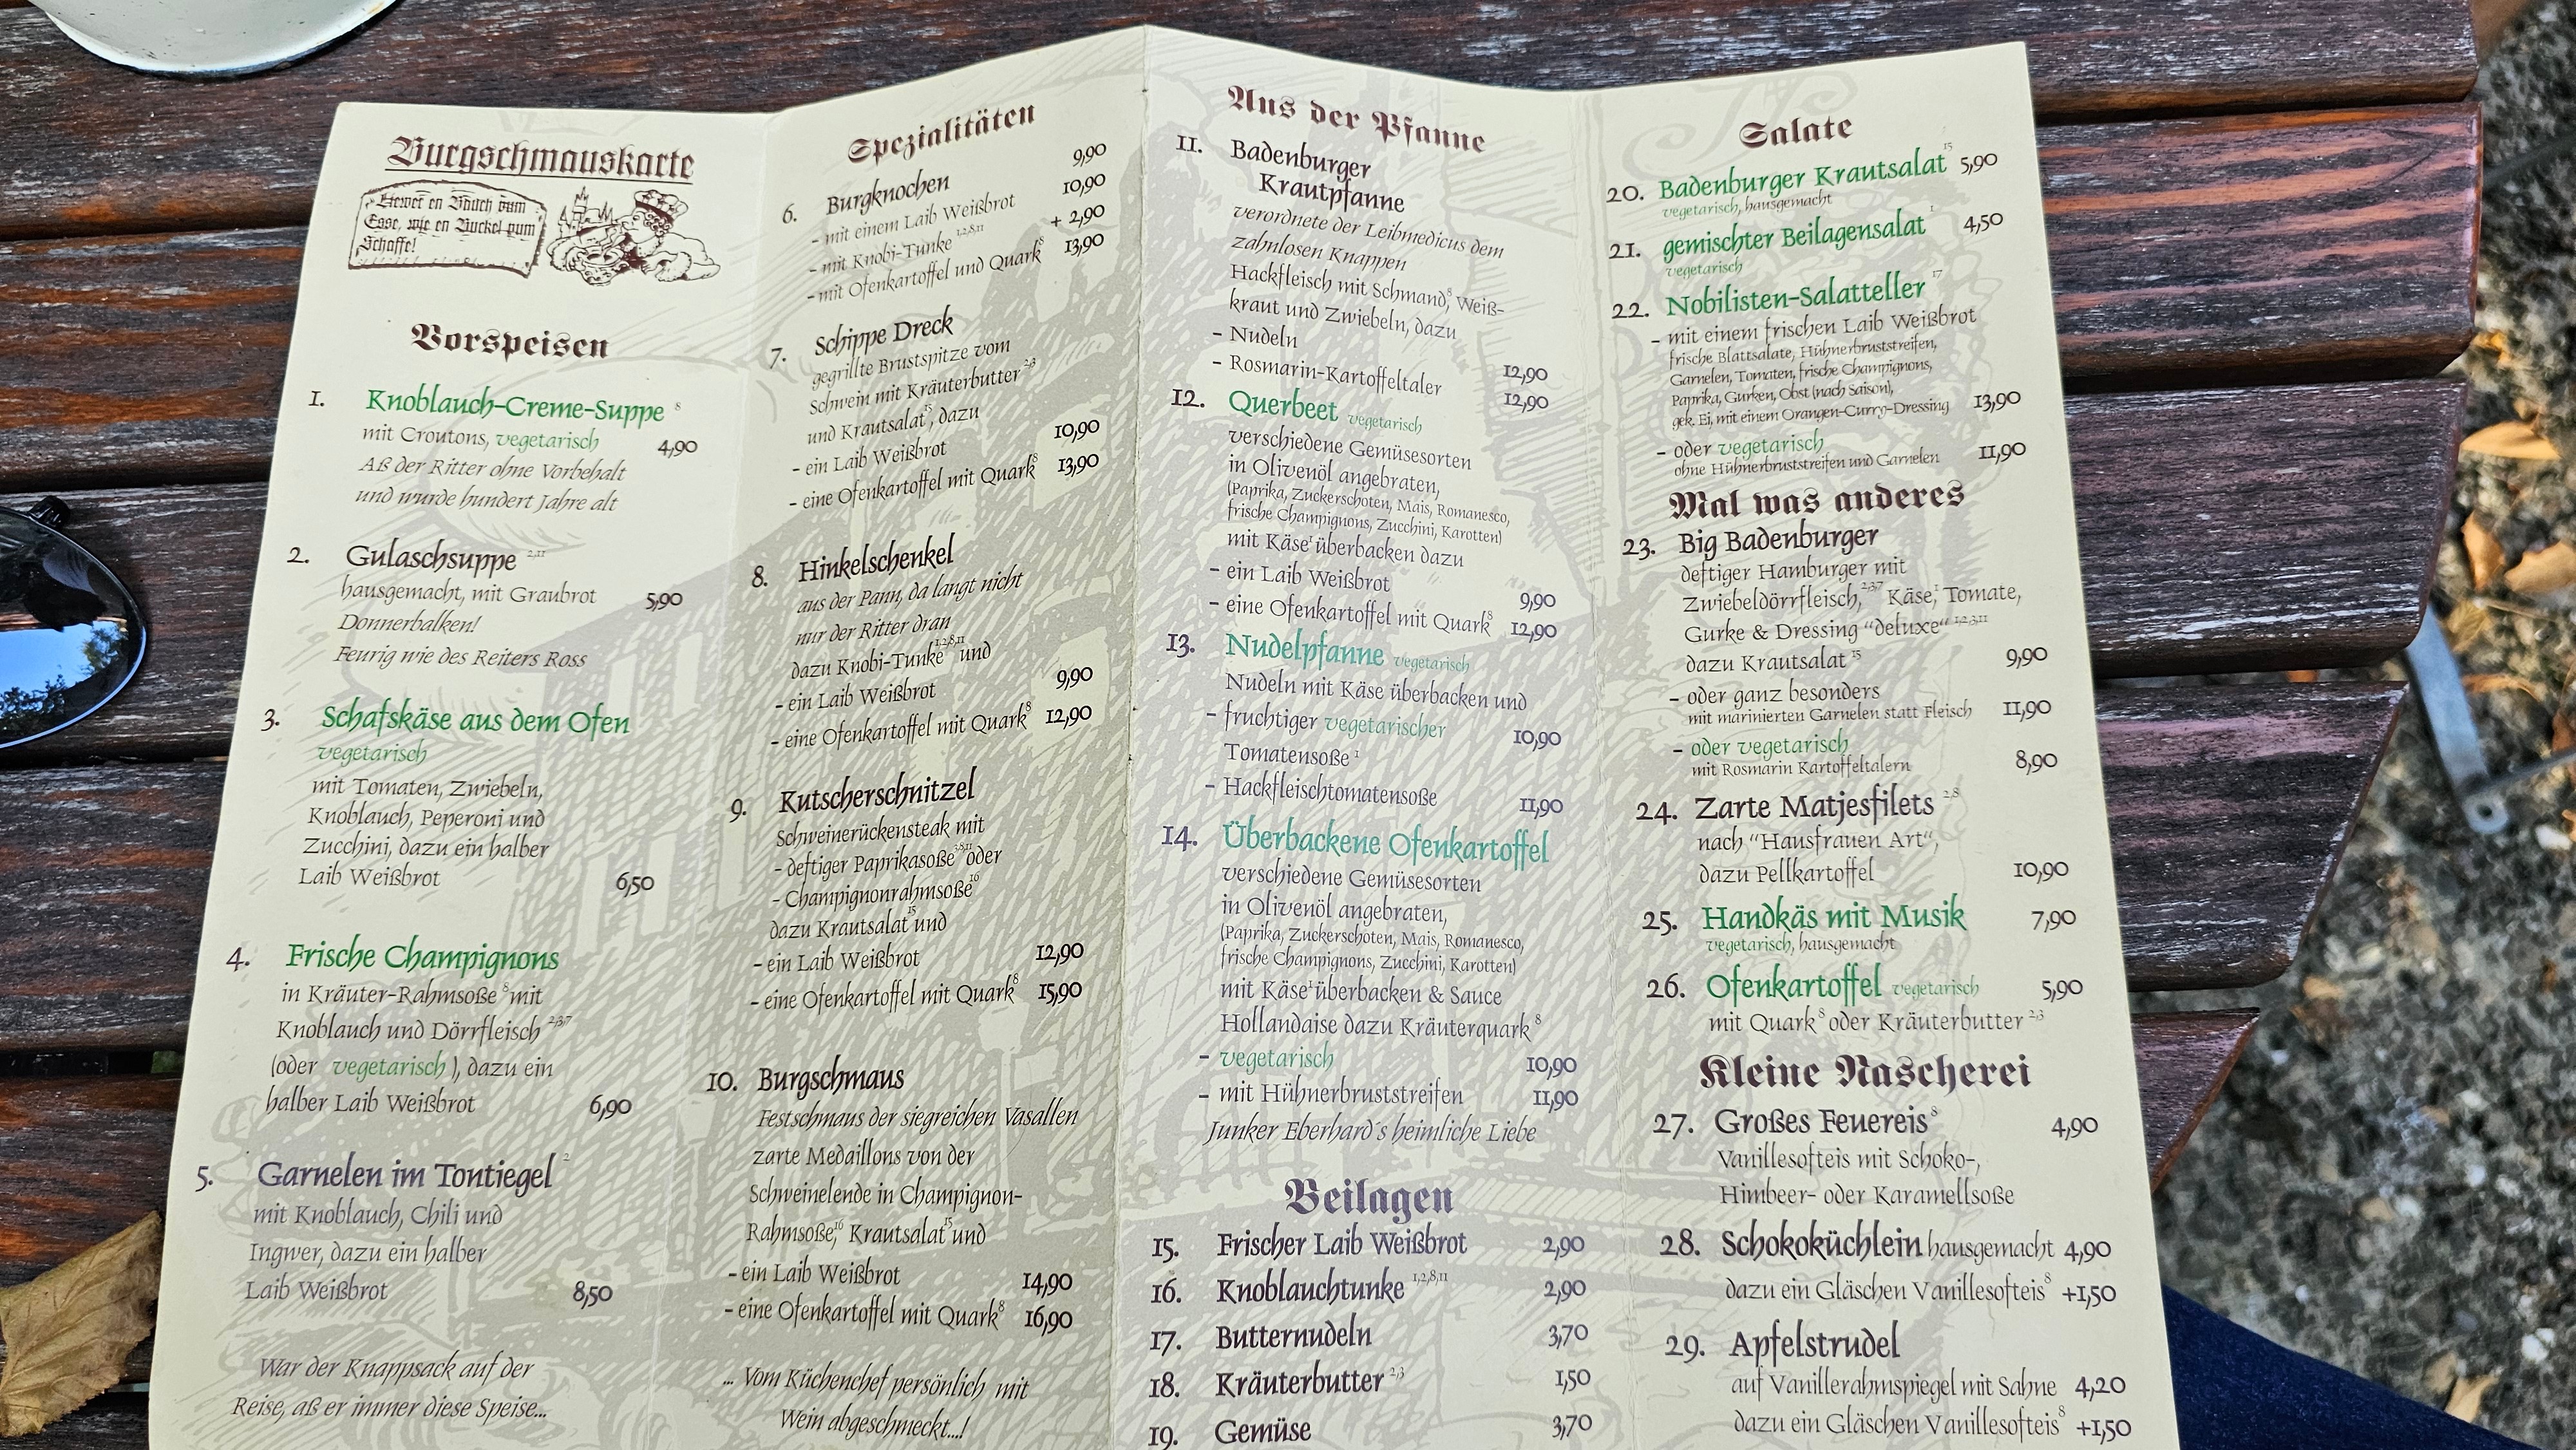 Burgschmauskarte
Liewer en Bauch vum
Esse, wie en Buckel vum
Schaffe!
Vorspeisen
1. Knoblauch-Creme-Suppe 8
mit Croutons, vegetarisch 4,90
Aß der Ritter ohne Vorbehalt
und wurde hundert Jahre alt
2. Gulaschsuppe 2,11
hausgemacht, mit Graubrot 5,90
Donnerbalken!
Feurig wie des Reiters Ross
3. Schafskäse aus dem Ofen
vegetarisch
mit Tomaten, Zwiebeln,
Knoblauch, Peperoni und
Zucchini, dazu ein halber
Laib Weißbrot 6,50
4. Frische Champignons
in Kräuter-Rahmsoße 8 mit
Knoblauch und Dörrfleisch 2,3,7
(oder vegetarisch), dazu ein
halber Laib Weißbrot 6,90
5. Garnelen im Tontiegel 2
mit Knoblauch, Chili und
Ingwer, dazu ein halber
Laib Weißbrot 8,50
War der Knappsack auf der
Reise, aß er immer diese Speise...
Spezialitäten
6. Burgknochen 9,90
- mit einem Laib Weißbrot 10,90
- mit Knobi-Tunke 1,2,8,11 + 2,90
- mit Ofenkartoffel und Quark 8 13,90
7. Schippe Dreck
gegrillte Brustspitze vom
Schwein mit Kräuterbutter 2,3
und Krautsalat 15, dazu
- ein Laib Weißbrot 10,90
- eine Ofenkartoffel mit Quark 8 13,90
8. Hinkelschenkel
aus der Pann, da langt nicht
nur der Ritter dran
dazu Knobi-Tunke 1,2,8,11 und
- ein Laib Weißbrot 9,90
- eine Ofenkartoffel mit Quark 8 12,90
9. Kutscherschnitzel
Schweinerückensteak mit
- deftiger Paprikasoße 3,8,11 oder
- Champignonrahmsoße 16
dazu Krautsalat 15 und
- ein Laib Weißbrot 12,90
- eine Ofenkartoffel mit Quark 8 15,90
10. Burgschmaus
Festschmaus der siegreichen Vasallen
zarte Medaillons von der
Schweinelende in Champignon-
Rahmsoße, 16 Krautsalat 15 und
- ein Laib Weißbrot 14,90
- eine Ofenkartoffel mit Quark 8 16,90
... Vom Küchenchef persönlich mit
Wein abgeschmeckt...!
Aus der Pfanne
11. Badenburger
Krautpfanne
verordnete der Leibmedicus dem
zahnlosen Knappen
Hackfleisch mit Schmand, 8 Weiß-
kraut und Zwiebeln, dazu
- Nudeln 12,90
- Rosmarin-Kartoffeltaler 12,90
12. Querbeet vegetarisch
verschiedene Gemüsesorten
in Olivenöl angebraten,
(Paprika, Zuckerschoten, Mais, Romanesco,
frische Champignons, Zucchini, Karotten)
mit Käse 1 überbacken dazu
- ein Laib Weißbrot 9,90
- eine Ofenkartoffel mit Quark 8 12,90
13. Nudelpfanne vegetarisch
Nudeln mit Käse überbacken und
- fruchtiger vegetarischer 10,90
Tomatensoße 1
- Hackfleischtomatensoße 11,90
14. Überbackene Ofenkartoffel
verschiedene Gemüsesorten
in Olivenöl angebraten,
(Paprika, Zuckerschoten, Mais, Romanesco,
frische Champignons, Zucchini, Karotten)
mit Käse 1 überbacken & Sauce
Hollandaise dazu Kräuterquark 8
- vegetarisch 10,90
- mit Hühnerbruststreifen 11,90
Junker Eberhard´s heimliche Liebe
Beilagen
15. Frischer Laib Weißbrot 2,90
16. Knoblauchtunke 1,2,8,11 2,90
17. Butternudeln 3,70
18. Kräuterbutter 2,3 1,50
19. Gemüse 3,70
Salate
20. Badenburger Krautsalat 15 5,90
vegetarisch, hausgemacht
21. gemischter Beilagensalat 1 4,50
vegetarisch
22. Nobilisten-Salatteller 17
- mit einem frischen Laib Weißbrot
frische Blattsalate, Hühnerbruststreifen,
Garnelen, Tomaten, frische Champignons,
Paprika, Gurken, Obst (nach Saison),
gek. Ei, mit einem Orangen-Curry-Dressing 13,90
- oder vegetarisch
ohne Hühnerbruststreifen und Garnelen 11,90
Mal was anderes
23. Big Badenburger
deftiger Hamburger mit
Zwiebeldörrfleisch, 2,3,7 Käse, 1 Tomate,
Gurke & Dressing “deluxe“ 1,2,3,11
dazu Krautsalat 15 9,90
- oder ganz besonders
mit marinierten Garnelen statt Fleisch 11,90
- oder vegetarisch
mit Rosmarin Kartoffeltalern 8,90
24. Zarte Matjesfilets 2,8
nach “Hausfrauen Art“,
dazu Pellkartoffel 10,90
25. Handkäs mit Musik 7,90
vegetarisch, hausgemacht
26. Ofenkartoffel vegetarisch 5,90
mit Quark 8 oder Kräuterbutter 2,3
Kleine Nascherei
27. Großes Feuereis 8 4,90
Vanillesofteis mit Schoko-,
Himbeer- oder Karamellsoße
28. Schokoküchlein hausgemacht 4,90
dazu ein Gläschen Vanillesofteis 8 +1,50
29. Apfelstrudel
auf Vanillerahmspiegel mit Sahne 4,20
dazu ein Gläschen Vanillesofteis 8 +1,50